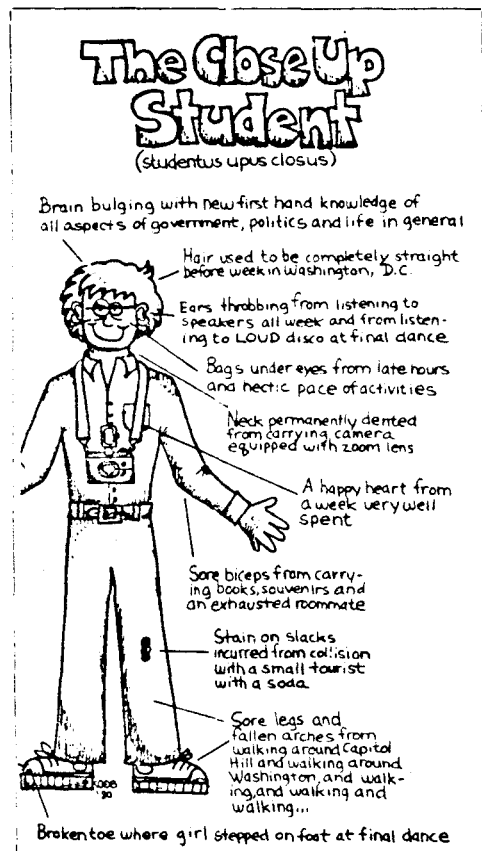 The Close Up
Student
(studentus upus closus)
Brain bulging with new first hand knowledge of
all aspects of government, politics and life in general
Hair used to be completely straight
before week in Washington, D.C.
Ears throbbing from listening to
speakers all week and from listen-
ing to LOUD disco at final dance
Bags under eyes from late hours
and hectic pace of activities
Neck permanently dented
from carrying camera
equipped with zoom lens
A happy heart from
a week very well
spent
Sore biceps from carry-
ing books, souvenirs and
an exhausted roommate
Stain on slacks
incurred from collision
with a small tourist
with a soda
Sore legs and
fallen arches from
walking around Capitol
Hill and walking around
Washington, and walk-
ing, and walking and
walking...
Broken toe where girl stepped on foot at final dance